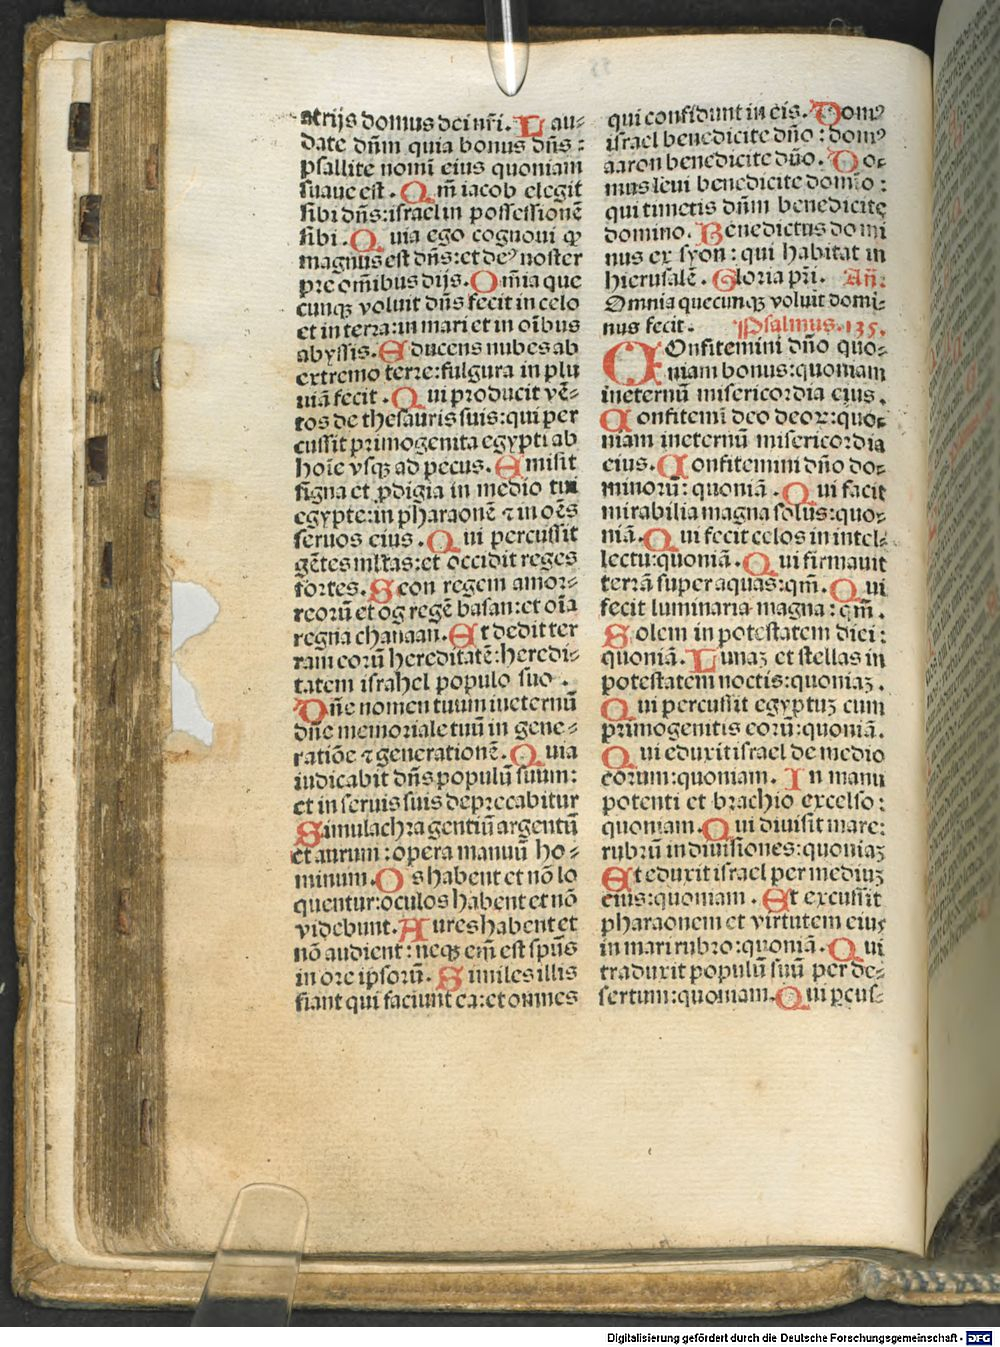 atrijs domus dei nr̄i. Lau⸗
date dn̄m quia bonus dn̄s :
psallite nomī eius quoniam
suaue est . Qm̄ iacob elegit
sibi dn̄s: israel in possessionē
sibi . Quia ego cognoui ꝙ
magnus est dn̄s: et deꝰ noster
pre om̄ibus dijs. Om̄ia que
cunqꝫ voluit dn̄s fecit in celo
et in terra: in mari et in oībus
abyssis. Educens nubes ab
extremo terre: fulgura in plu
uiā fecit . Qui producit vē⸗
tos de thesauris suis: qui per
cussit primogenita egypti ab
hoīe vsqꝫ ad pecus. Emisit
signa et ꝓdigia in medio tui
egypte: in pharaonē ⁊ in oēs
seruos eius . Qui percussit
gētes ml̄tas: et occidit reges
fortes. Seon regem amor⸗
reorū et og regē basan: et oīa
regna chanaan. Et dedit ter
ram eorū hereditatē: heredi⸗
tatem israhel populo suo .
Dn̄e nomen tuum ineternū
dn̄e memoriale tuū in gene⸗
ratiōe ⁊ generationē. Quia
iudicabit dn̄s populū suum:
et in seruis suis deprecabitur
Simulachra gentiū argentū
et aurum : opera manuū ho⸗
minum. Os habent et nō lo
quentur: oculos habent et nō
videbunt. Aures habent et
nō audient : neqꝫ em̄ est spūs
in ore ipsorū. Similes illis
fiant qui faciunt ea: et omnes
qui confidunt in eis. Domꝰ
israel benedicite dn̄o : domꝰ
aaron benedicite dn̄o . Do⸗
mus leui benedicite domīo :
qui timetis dn̄m benedicite
domino. Benedictus domi
nus ex syon : qui habitat in
hierusalē . Gloria pr̄i. An̄:
Omnia quecunqꝫ voluit domi⸗
nus fecit . Psalmus .135.
COnfitemini dn̄o quo⸗
niam bonus: quoniam
ineternū misericordia eius .
Confitemī deo deoꝝ: quo⸗
niam ineternū misericordia
eius. Confitemini dn̄o do⸗
minorū: quoniā . Qui facit
mirabilia magna solus: quo⸗
niā. Qui fecit celos in intel⸗
lectu: quoniā. Qui firmauit
terrā super aquas: qm̄. Qui
fecit luminaria magna : qm̄.
Solem in potestatem diei :
quoniā. Lunaꝫ et stellas in
potestatem noctis: quoniaꝫ .
Qui percussit egyptuꝫ cum
primogenitis eorū: quoniā.
Qui eduxit israel de medio
eorum: quoniam. In manu
potenti et brachio excelso :
quoniam. Qui diuisit mare:
rubrū in diuisiones: quoniaꝫ
Et eduxit israel per mediuꝫ
eius: quoniam . Et excussit
pharaonem et virtutem eius
in mari rubro: quoniā . Qui
traduxit populū suū per de⸗
sertum: quoniam. Qui ꝑcus⸗
Digitalisierung gefördert durch die Deutsche Forschungsgemeinschaft - DFG